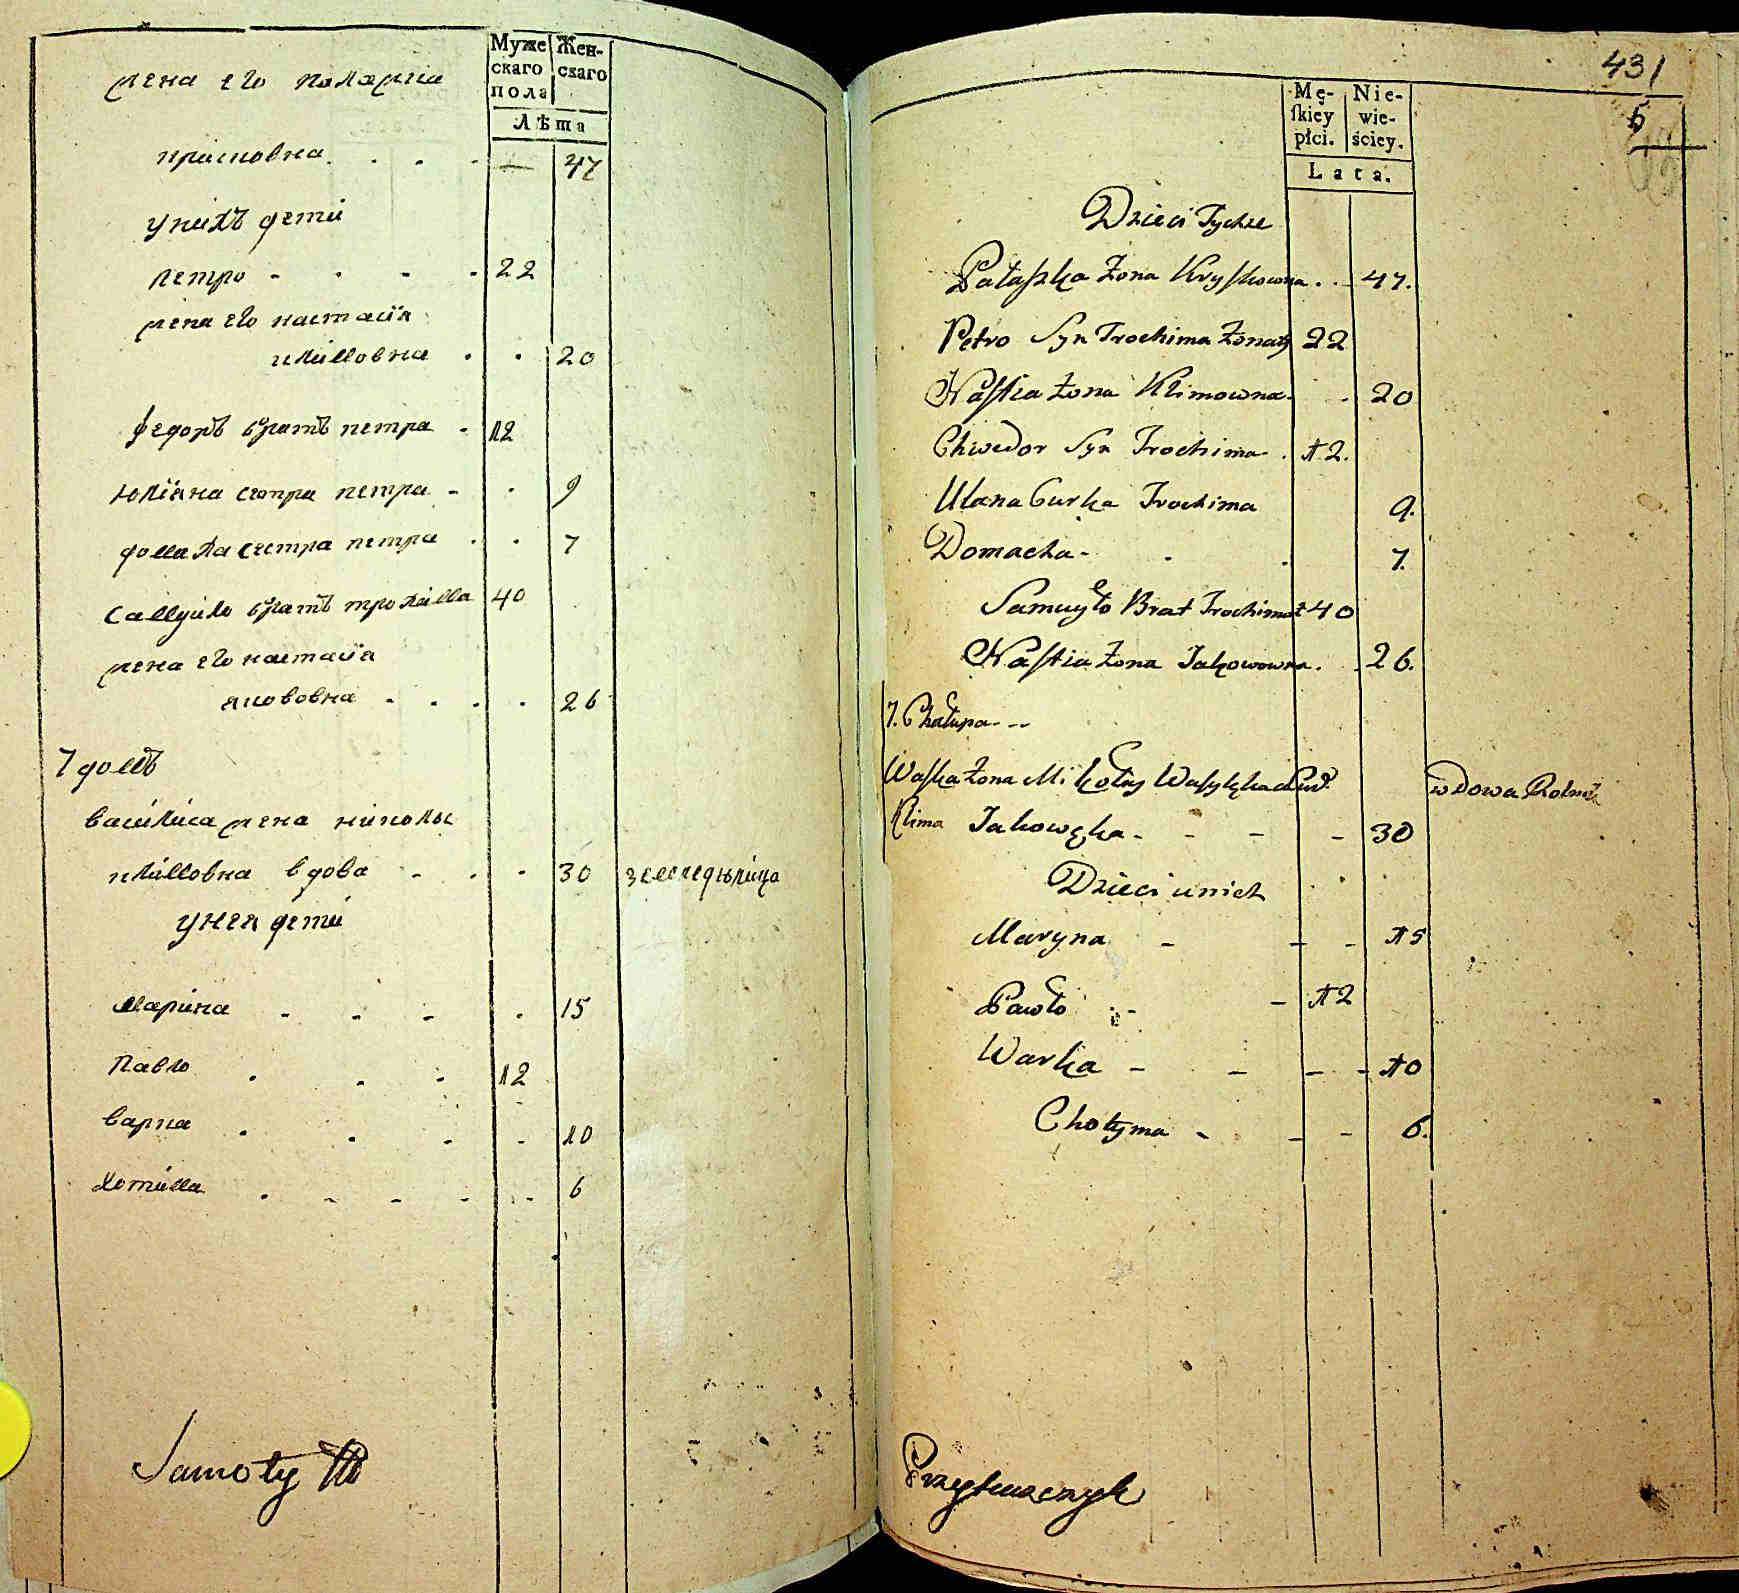 Муже скаго пола
Жен- скаго
Лѣта
жена его палажка
присковна 47
у нихъ дети
петро 22
жена его настасія
климовна 20
федоръ братъ петра 12
юліяна сестра петра 9
домаха сестра петра 7
Самуйло братъ трохима 40
жена его настасія
якововна 26
7 домъ
василиса жена николы
климовна вдова 30
у нея дети
марина 15
Павло 12
варка 10
хотима 6
Samoty
431
5
Mę- skiey płci.
Nie- wie- ściey.
Lata.
Dzieci Tychże
Pałaszka żona Kryskowna 47.
Petro Syn Trochima żonaty 22
Nastia żona Klimowna 20
Chwedor Syn Trochima 12.
Ulana Curka Trochima 9.
Domacha 7.
Samuyło Brat Trochima 40
Nastia żona Jakowowna 26.
7. Chałupa
Waska żona Mikołay
wdowa
Klima Jakowęka 30
Dzieci u nich
Maryna 15
Pawło 12
Warka 10
Chotyma 6.